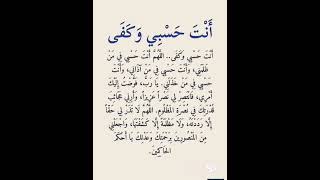 أَنْتَ حَسْبِي وَكَفَى
أَنْتَ حَسْبِي وَكَفَى.. اللَّهُمَّ أَنْتَ حَسْبِي فِي مَنْ
ظَلَمَنِي، وَأَنْتَ حَسْبِي فِي مَنْ آذَانِي، وَأَنْتَ
حَسْبِي فِي مَنْ خَذَلَنِي. يَا رَبِّ، فَوَّضْتُ إِلَيْكَ
أَمْرِي، فَانْتَصِرْ لِي نَصْراً عَزِيزاً، وَأَرِنِي عَجَائِبَ
قُدْرَتِكَ فِي نُصْرَةِ الْمَظْلُومِ. اللَّهُمَّ لَا تَذَرْ لِي حَقّاً
إِلَّا رَدَدْتَهُ، وَلَا مَظْلَمَةً إِلَّا كَشَفْتَهَا، وَاجْعَلْنِي
مِنَ الْمَنْصُورِينَ بِرَحْمَتِكَ وَعَدْلِكَ يَا أَحْكَمَ
الْحَاكِمِينَ.